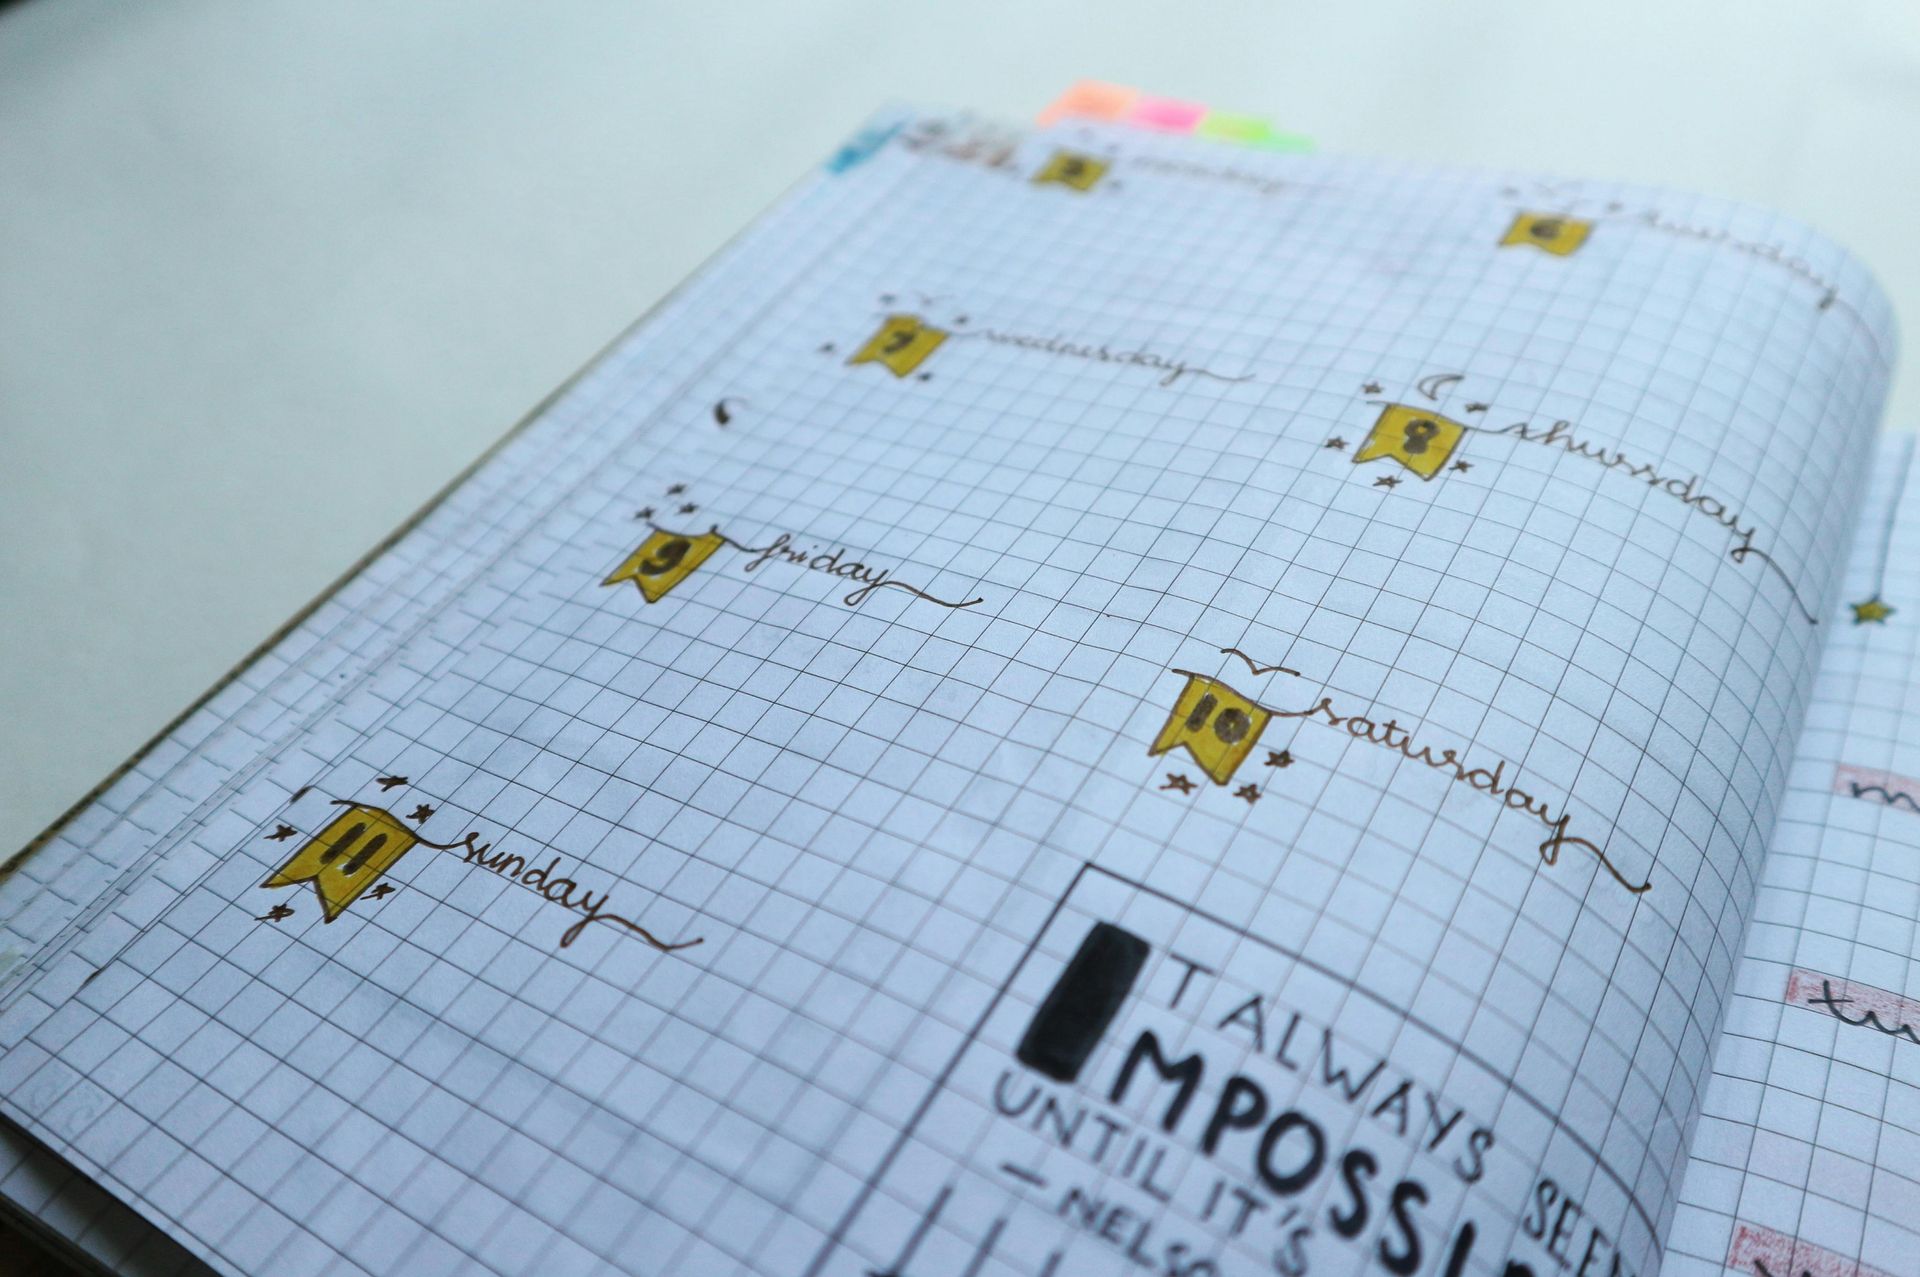 5 monday
6 tuesday
7 wednesday
8 thursday
9 friday
10 saturday
11 sunday
IT ALWAYS SEE
IMPOSSI
UNTIL IT'S
- NELSO
m
tu